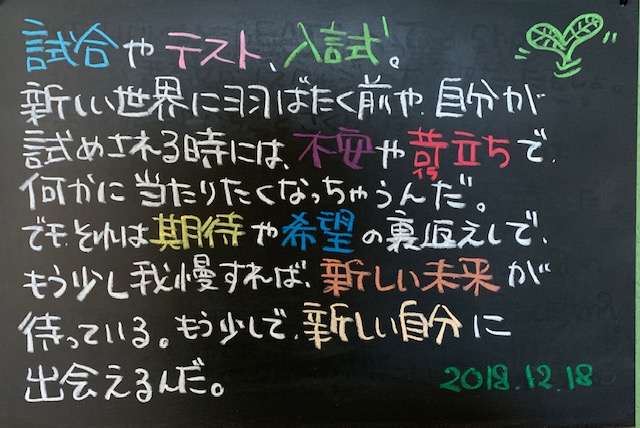 試合やテスト、入試。
新しい世界に羽ばたく前や、自分が
試めされる時には、不安や苛立ちで、
いら
何かに当たりたくなっちゃうんだ。
でも、それは期待や希望の裏返えしで、
もう少し我慢すれば、新しい未来が
待っている。もう少しで、新しい自分に
出会えるんだ。
2018.12.18